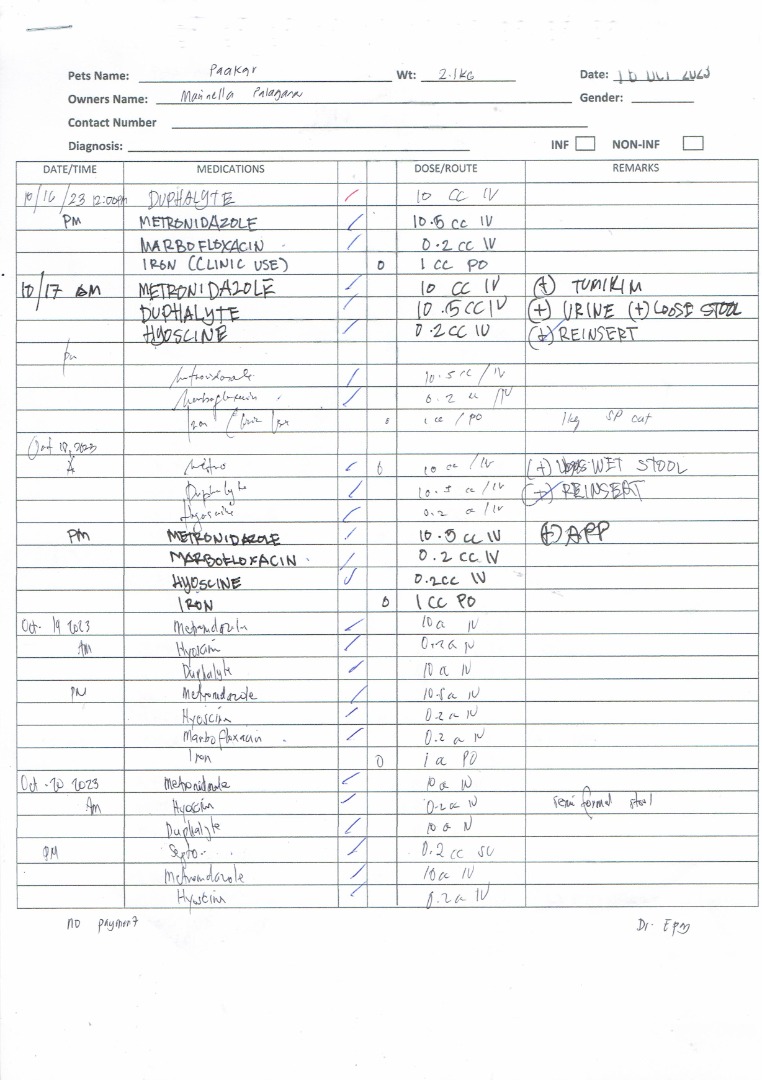 Pets Name: Paakar Wt: 2.1KG Date: 16 OCT 2023
Owners Name: Marinella Palagana Gender:
Contact Number
Diagnosis: INF NON-INF
DATE/TIME MEDICATIONS DOSE/ROUTE REMARKS
10/16/23 12:00pm DUPHALYTE 10 CC IV
PM METRONIDAZOLE 10.5 cc IV
MARBOFLOXACIN 0.2 cc IV
IRON (CLINIC USE) 0 1 CC PO
10/17 AM METRONIDAZOLE 10 CC IV (+) TUMIKIM
DUPHALYTE 10.5CC IV (+) URINE (+) LOOSE STOOL
HYOSCINE 0.2CC IV (+) REINSERT
pm
Metronidazole 10.5 cc / IV
Marbofloxacin 0.2 cc / IV
Iron Clinic Use 0 1 cc / PO 1kg SP cat
Oct 18, 2023
A Metro 0 10 cc / IV (+) WET STOOL
Duphalyte 10.5 cc / IV (+) REINSERT
Hyoscine 0.2 cc / IV
PM METRONIDAZOLE 10.5 cc IV (+) APP
MARBOFLOXACIN 0.2 CC IV
HYOSCINE 0.2CC IV
IRON 0 1 CC PO
Oct. 19 2023 Metronidazole 10 cc IV
AM Hyoscine 0.2 cc IV
Duphalyte 10 cc IV
PM Metronidazole 10.5 cc IV
Hyoscine 0.2 cc IV
Marbofloxacin 0.2 cc IV
Iron 0 1 cc PO
Oct. 20 2023 Metronidazole 10 cc IV
AM Hyoscine 0.2 cc IV semi formed stool
Duphalyte 10 cc IV
PM Septo. 0.2 cc SC
Metronidazole 10 cc IV
Hyoscine 0.2 cc IV
no payment Dr. Epm